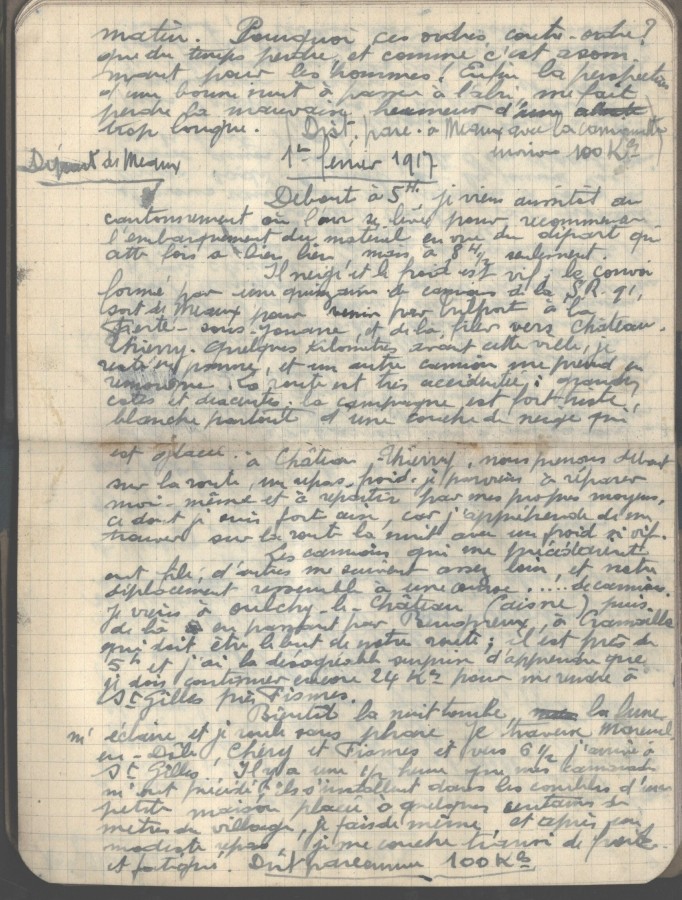 matin. Pourquoi ces ordres contre-ordre?
que du temps perdu, et comme c'est assom
mant pour les hommes. Enfin la perspective
d'une bonne nuit à passer à l'abri me fait
perdre la mauvaise humeur d'une
trop longue. (Dist. parc. à Meaux avec la camionnette
environ 100 Km)
Départ de Meaux
1er février 1917
Debout à 5H, je viens aussitôt au
cantonnement où l'on se lève pour recommencer
l'embarquement du matériel en vue du départ qui
cette fois a bien lieu mais à 8H1/2 seulement.
Il neige et le froid est vif, le convoi
formé par une quinzaine de camions de la S.R. 91,
sort de Meaux pour venir par Trilport à la
Ferté-sous-Jouarre, et de là, filer vers Château-
Thierry. Quelques kilomètres avant cette ville, je
reste en panne, et un autre camion me prend en
remorque. La route est très accidentée; grandes
côtes et descentes. la campagne est fort triste,
blanche partout d'une couche de neige qui
est glacée. à Château-Thierry, nous prenons debout
sur la route, un repas froid. je parviens à réparer
moi-même et à repartir par mes propres moyens,
ce dont je suis fort aise, car j'appréhende de me
trouver sur la route la nuit avec un froid si vif.
Les camions qui me précédaient
ont filé, d'autres me suivent assez loin, et notre
déplacement ressemble à une course..... de camions.
Je viens à Oulchy-le-Château (aisne) puis
de là en passant par à Cramaille
qui doit être le but de notre route; il est près de
5H et j'ai la désagréable surprise d'apprendre que
je dois continuer encore 24 Km pour me rendre à
St Gilles près Fismes.
Bientôt la nuit tombe, la lune
m'éclaire et je roule sans phare. Je traverse Mareuil-
en-Dôle, Chéry et Fismes et vers 6H1/2 j'arrive à
St Gilles. Il y a une 1/2 heure que mes camarades
m'ont précédé; ils s'installent dans les combles d'une
petite maison placée à quelques centaines de
mètres du village, je fais de même et après un
modeste repas je me couche transi de froid
et fatigué. Dist parcourue 100 Km